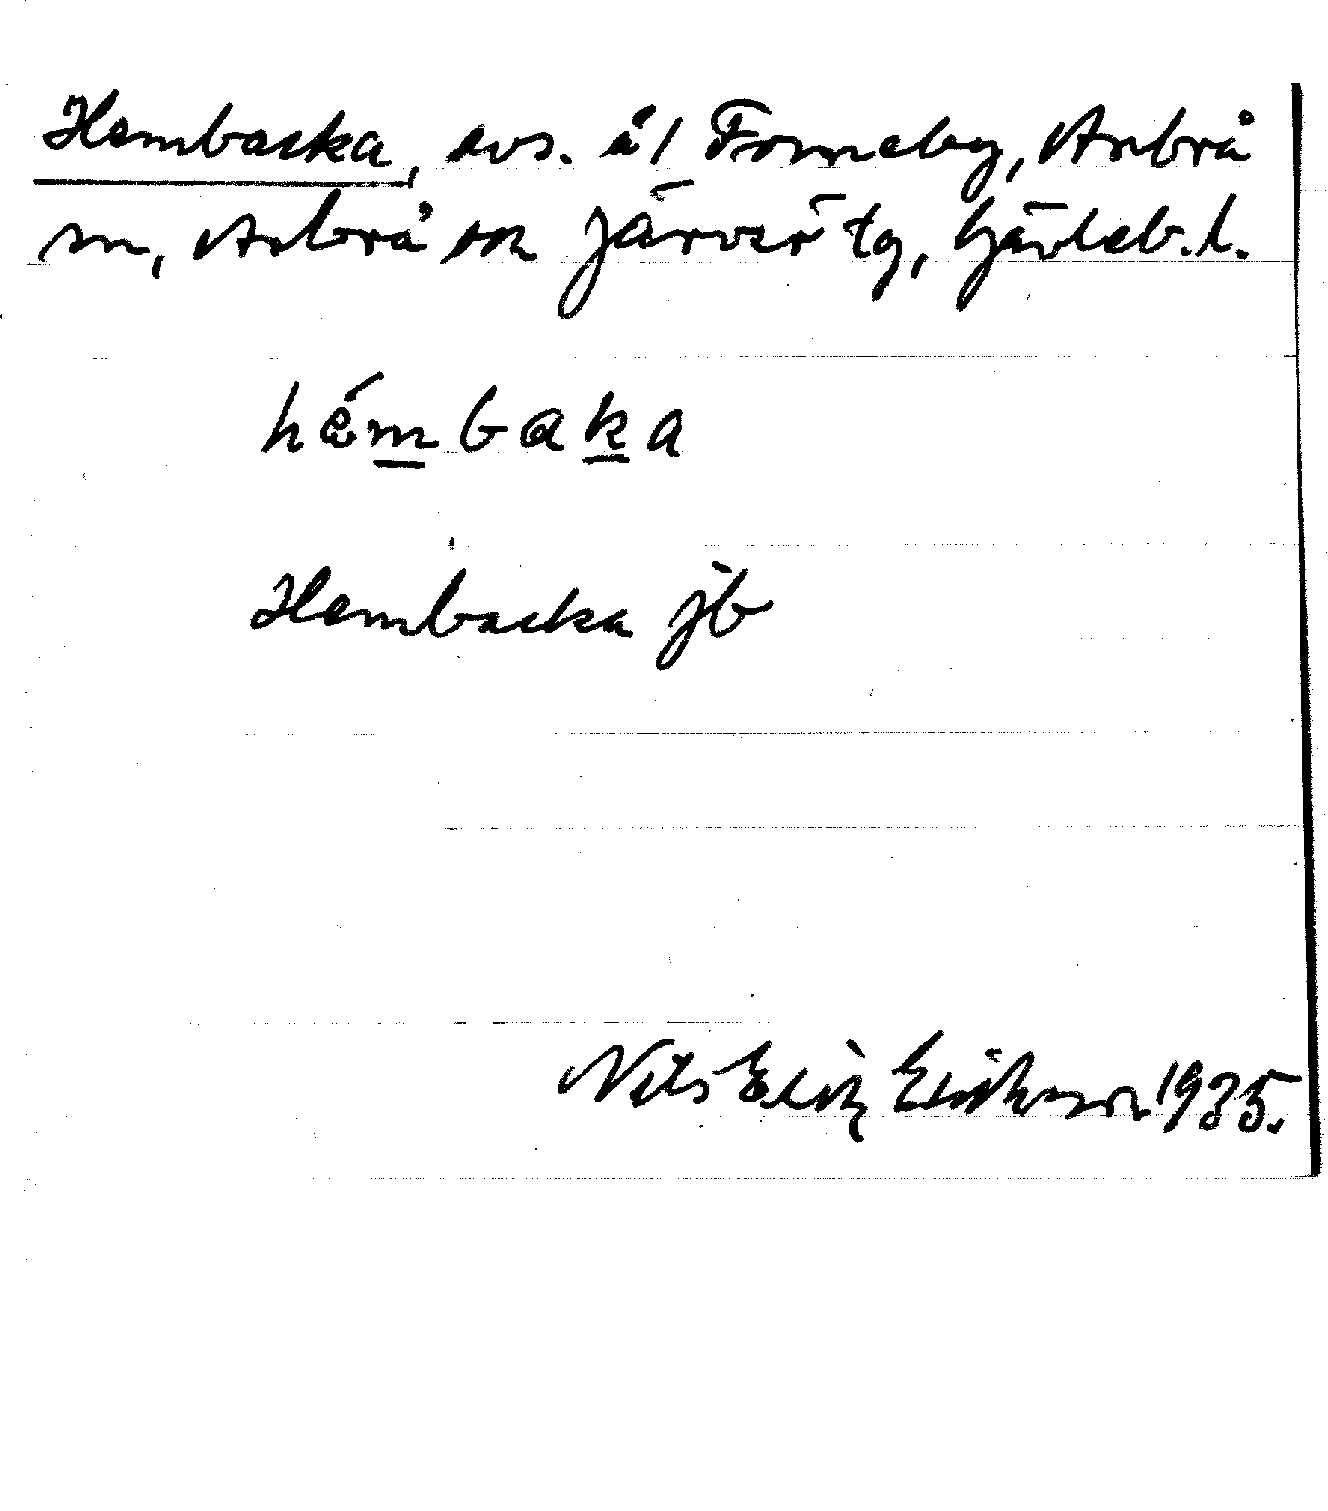 Hembacka, avs. å 1 Forneby, Arbrå
sn, Arbrå och Järvsö tg, Gävleb. l.
hémbaka
Hembacka jb
Nils Erik Eriksson 1935.